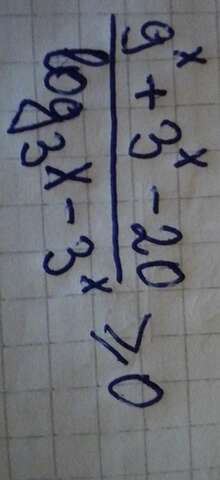 9ˣ + 3ˣ - 20
log₃x - 3ˣ ⩾ 0